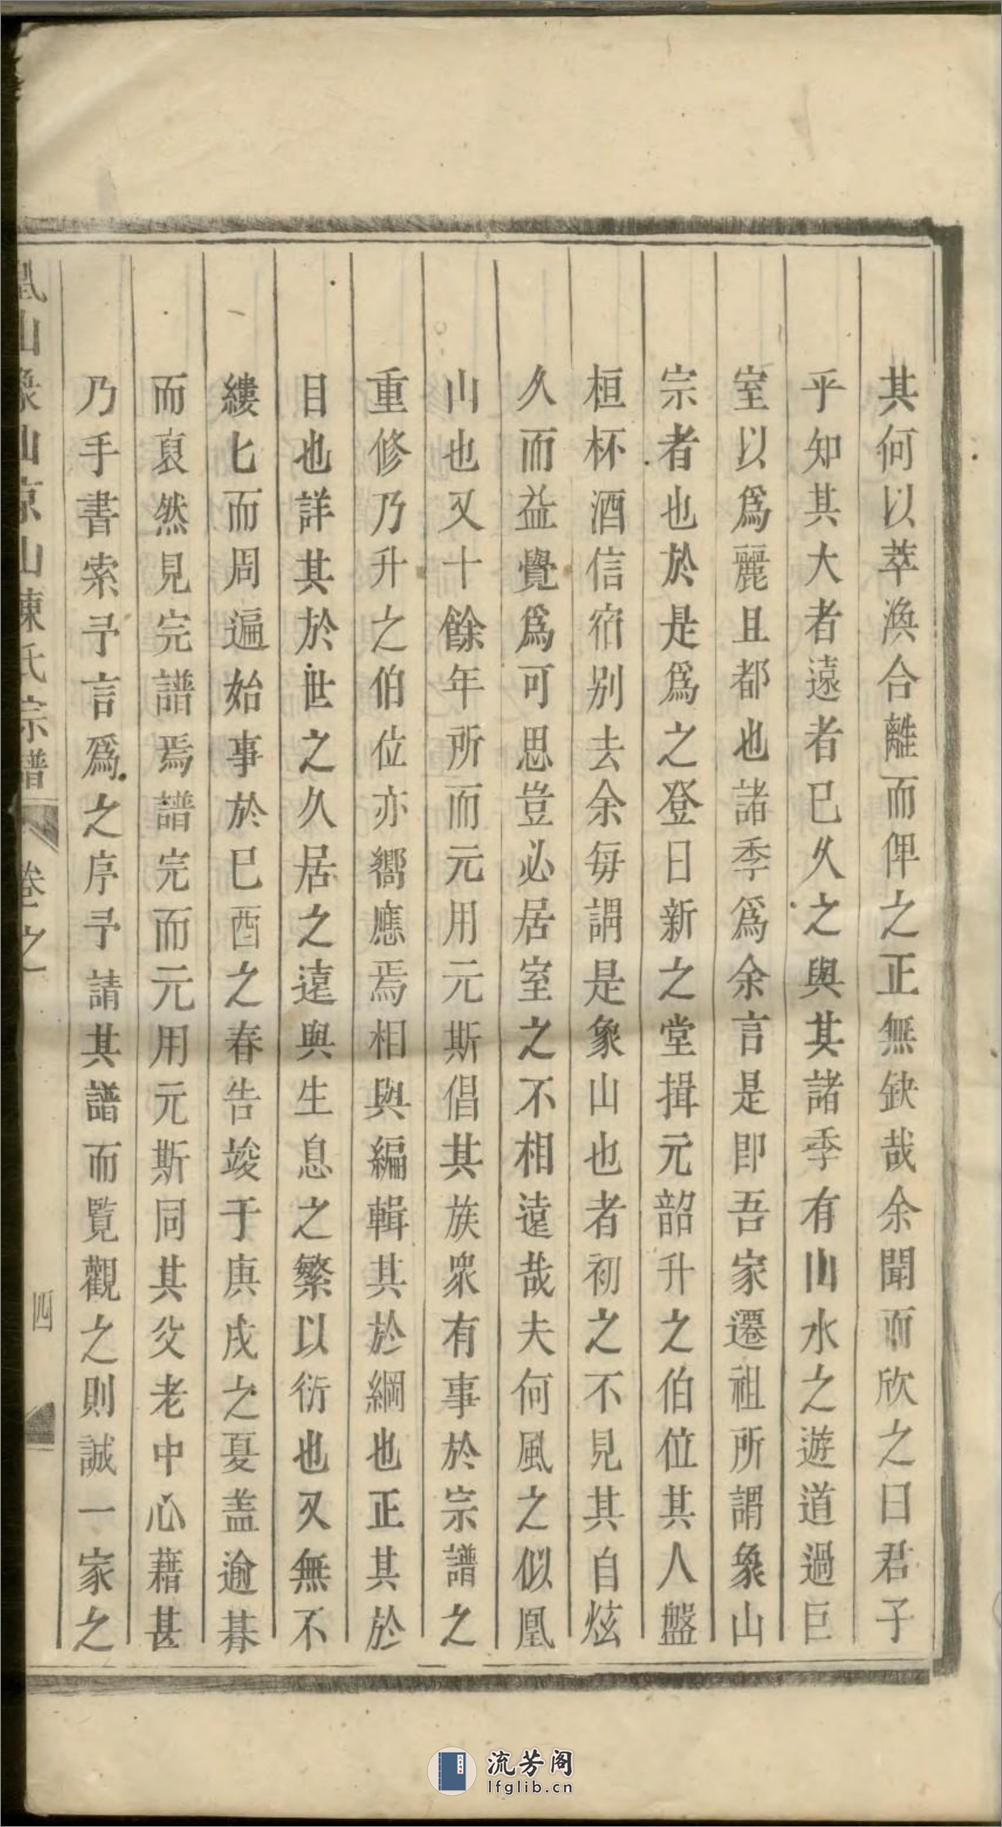 其何以萃渙合離而俾之正無缺哉余聞而欣之曰君子
乎知其大者遠者已久之與其諸季有山水之遊道過巨
室以爲麗且都也諸季爲余言是即吾家遷祖所謂象山
宗者也於是爲之登日新之堂揖元韶升之伯位其人盤
桓杯酒信宿别去余每謂是象山也者初之不見其自炫
久而益覺爲可思豈必居室之不相遠哉夫何風之似凰
山也又十餘年所而元用元斯倡其族眾有事於宗譜之
重修乃升之伯位亦嚮應焉相與編輯其於綱也正其於
目也詳其於世之久居之遠與生息之繁以衍也又無不
縷匕而周遍始事於巳酉之春告竣于庚戌之夏盖逾朞
而裒然見完譜焉譜完而元用元斯同其父老中心藉甚
乃手書索予言爲之序予請其譜而覧觀之則誠一家之
凰山象山京山陳氏宗譜
卷之
四
流芳阁
lfglib.cn